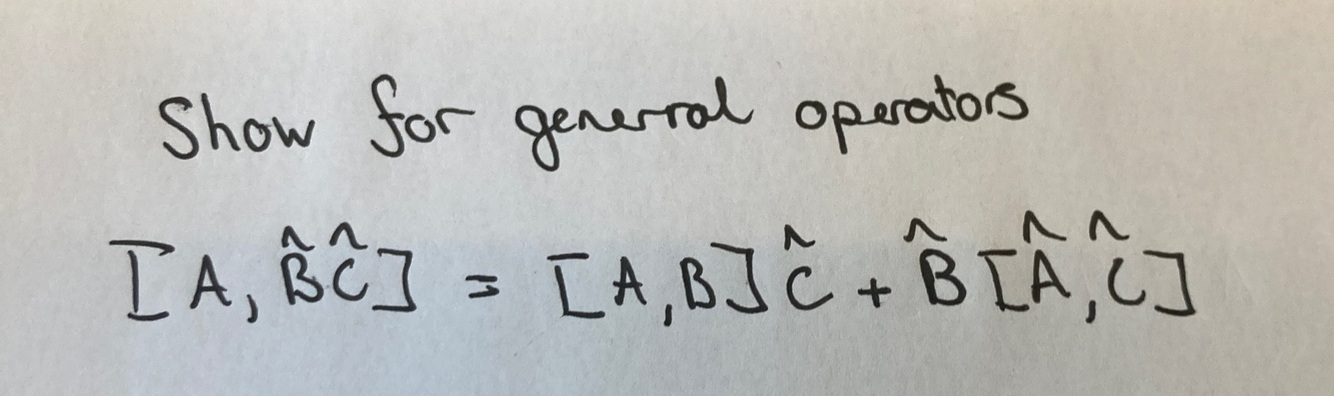 Show for general operators
[A, B̂Ĉ] = [A,B]Ĉ + B̂[Â,Ĉ]